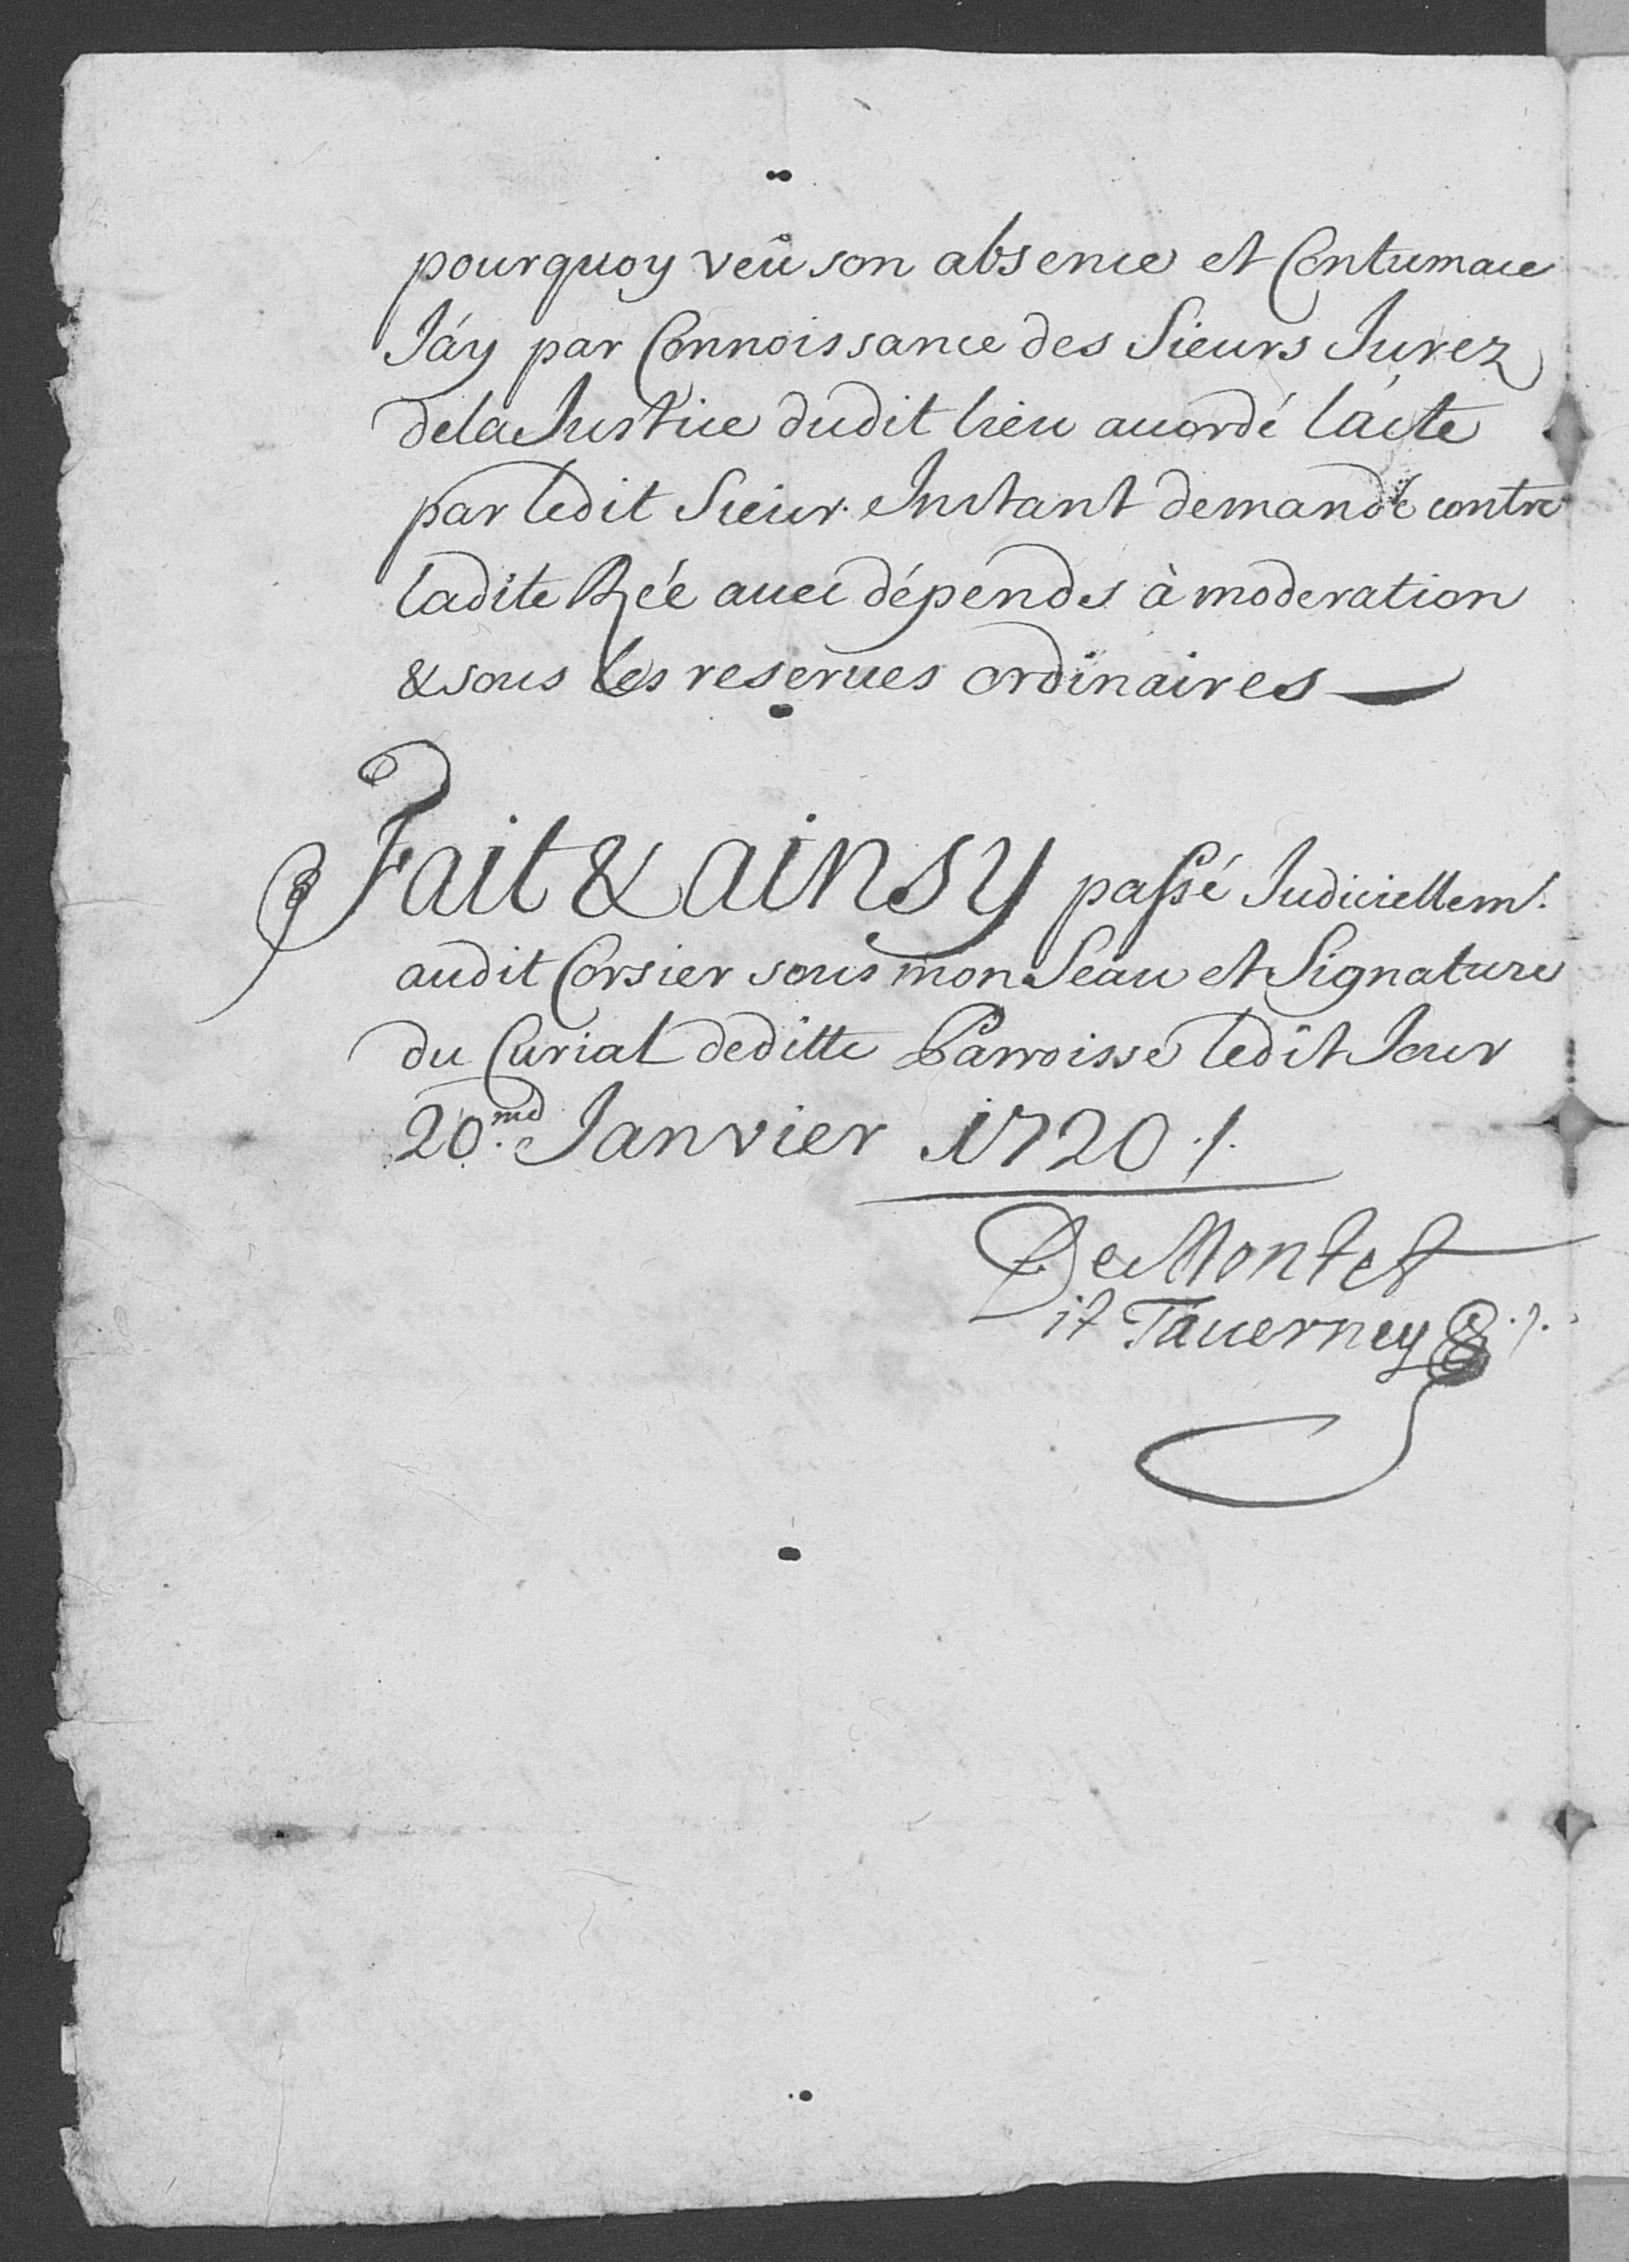 pourquoy veû son absence et Contumace
Jáy par Connoissance des Sieurs Jurez
dela Justice dudit lieu accordé lácte
par ledit Sieur Instant demandé contre
ladite Rée avec dépends à moderation
& sous les reserves ordinaires
Fait & ainsy passé Judiciellemt.
audit Corsier sous mon Seau et Signature
du Curial deditte Parroisse ledit Jour
20.me Janvier 1720 ./.
De Montet
it Tauerney